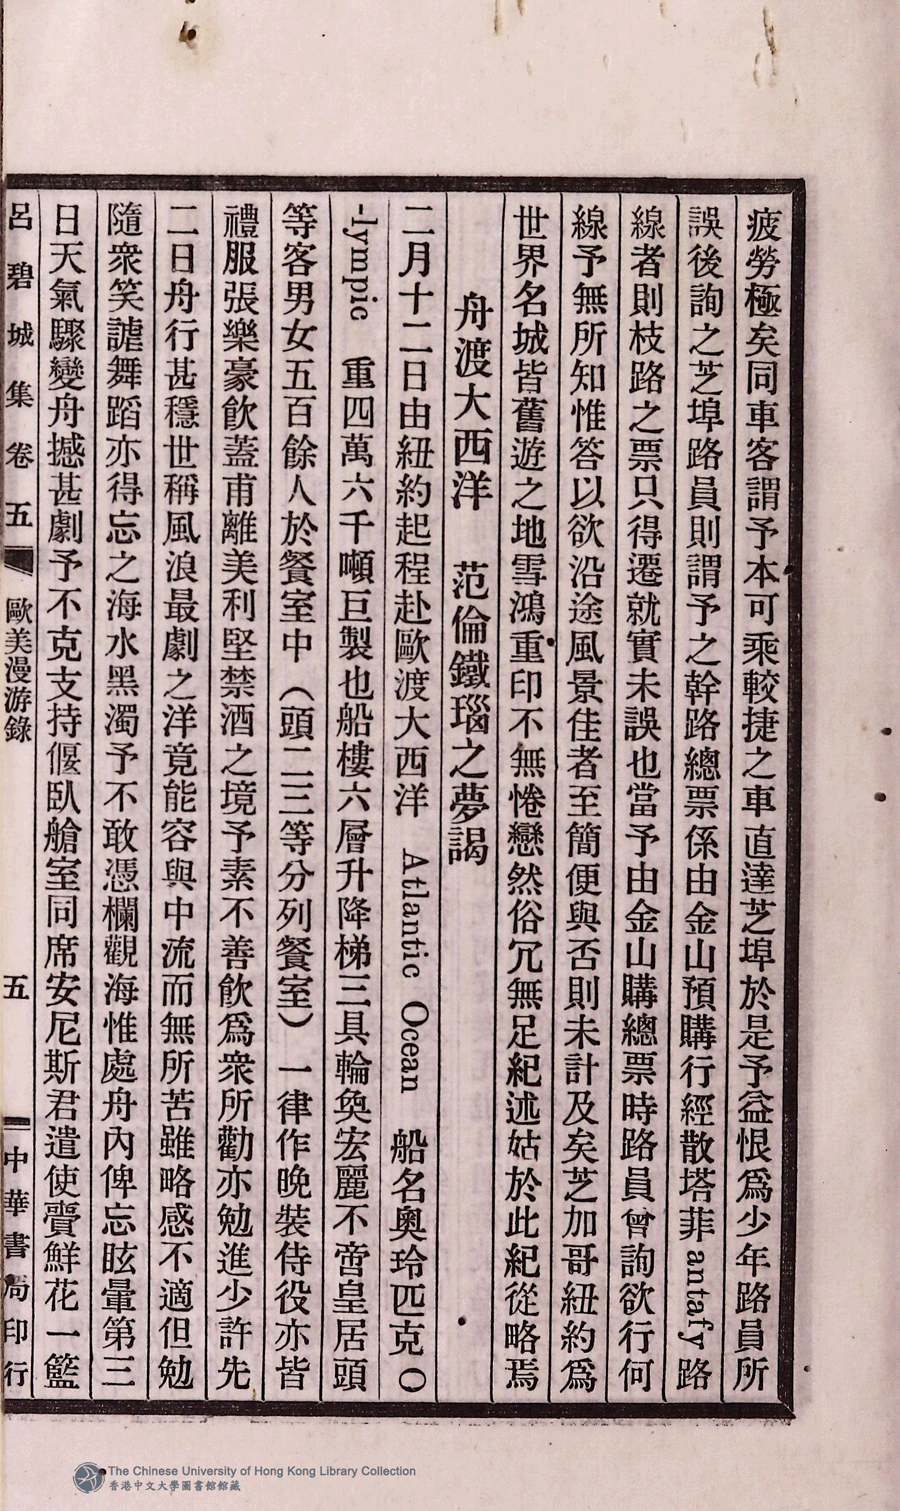 疲勞極矣同車客謂予本可乘較捷之車直達芝埠於是予益恨爲少年路員所
誤後詢之芝埠路員則謂予之幹路總票係由金山預購行經散塔菲 antafy 路
線者則枝路之票只得遷就實未誤也當予由金山購總票時路員曾詢欲行何
線予無所知惟答以欲沿途風景佳者至簡便與否則未計及矣芝加哥紐約爲
世界名城皆舊遊之地雪鴻重印不無惓戀然俗冗無足紀述姑於此紀從略焉
舟渡大西洋 范倫鐵瑙之夢謁
二月十二日由紐約起程赴歐渡大西洋 Atlantic Ocean 船名奧玲匹克 O
-lympic 重四萬六千噸巨製也船樓六層升降梯三具輪奐宏麗不啻皇居頭
等客男女五百餘人於餐室中（頭二三等分列餐室）一律作晚裝侍役亦皆
禮服張樂豪飮蓋甫離美利堅禁酒之境予素不善飮爲衆所勸亦勉進少許先
二日舟行甚穩世稱風浪最劇之洋竟能容與中流而無所苦雖略感不適但勉
隨衆笑謔舞蹈亦得忘之海水黑濁予不敢憑欄觀海惟處舟內俾忘眩暈第三
日天氣驟變舟撼甚劇予不克支持偃臥艙室同席安尼斯君遣使賫鮮花一籃
呂碧城集卷五 歐美漫游錄 五 中華書局印行
The Chinese University of Hong Kong Library Collection
香港中文大學圖書館館藏